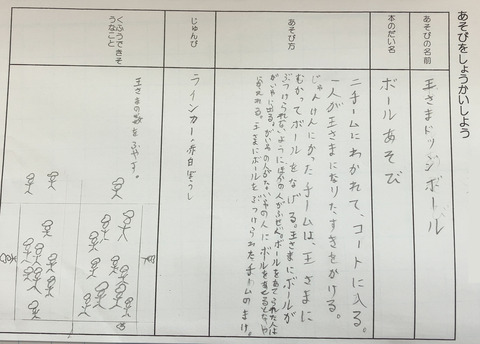 あそびをしょうかいしよう
あそびの名前
王さまドッジボール
本のだい名
ボールあそび
あそび方
二チームにわかれて、コートに入る。
一人が王さまになりたすきをかける。
じゃんけんにかったチームは、王さまに
むかってボールをなげる。王さまにボールが
ぶつけられないようにほかの人がふせぐ。ボールをあてられた人は
王さまにボールをぶつけられたチームのまけ。
じゅんび
ラインカー・赤白ぼうし
くふうできそ
うなこと
王さまの数をふやす。